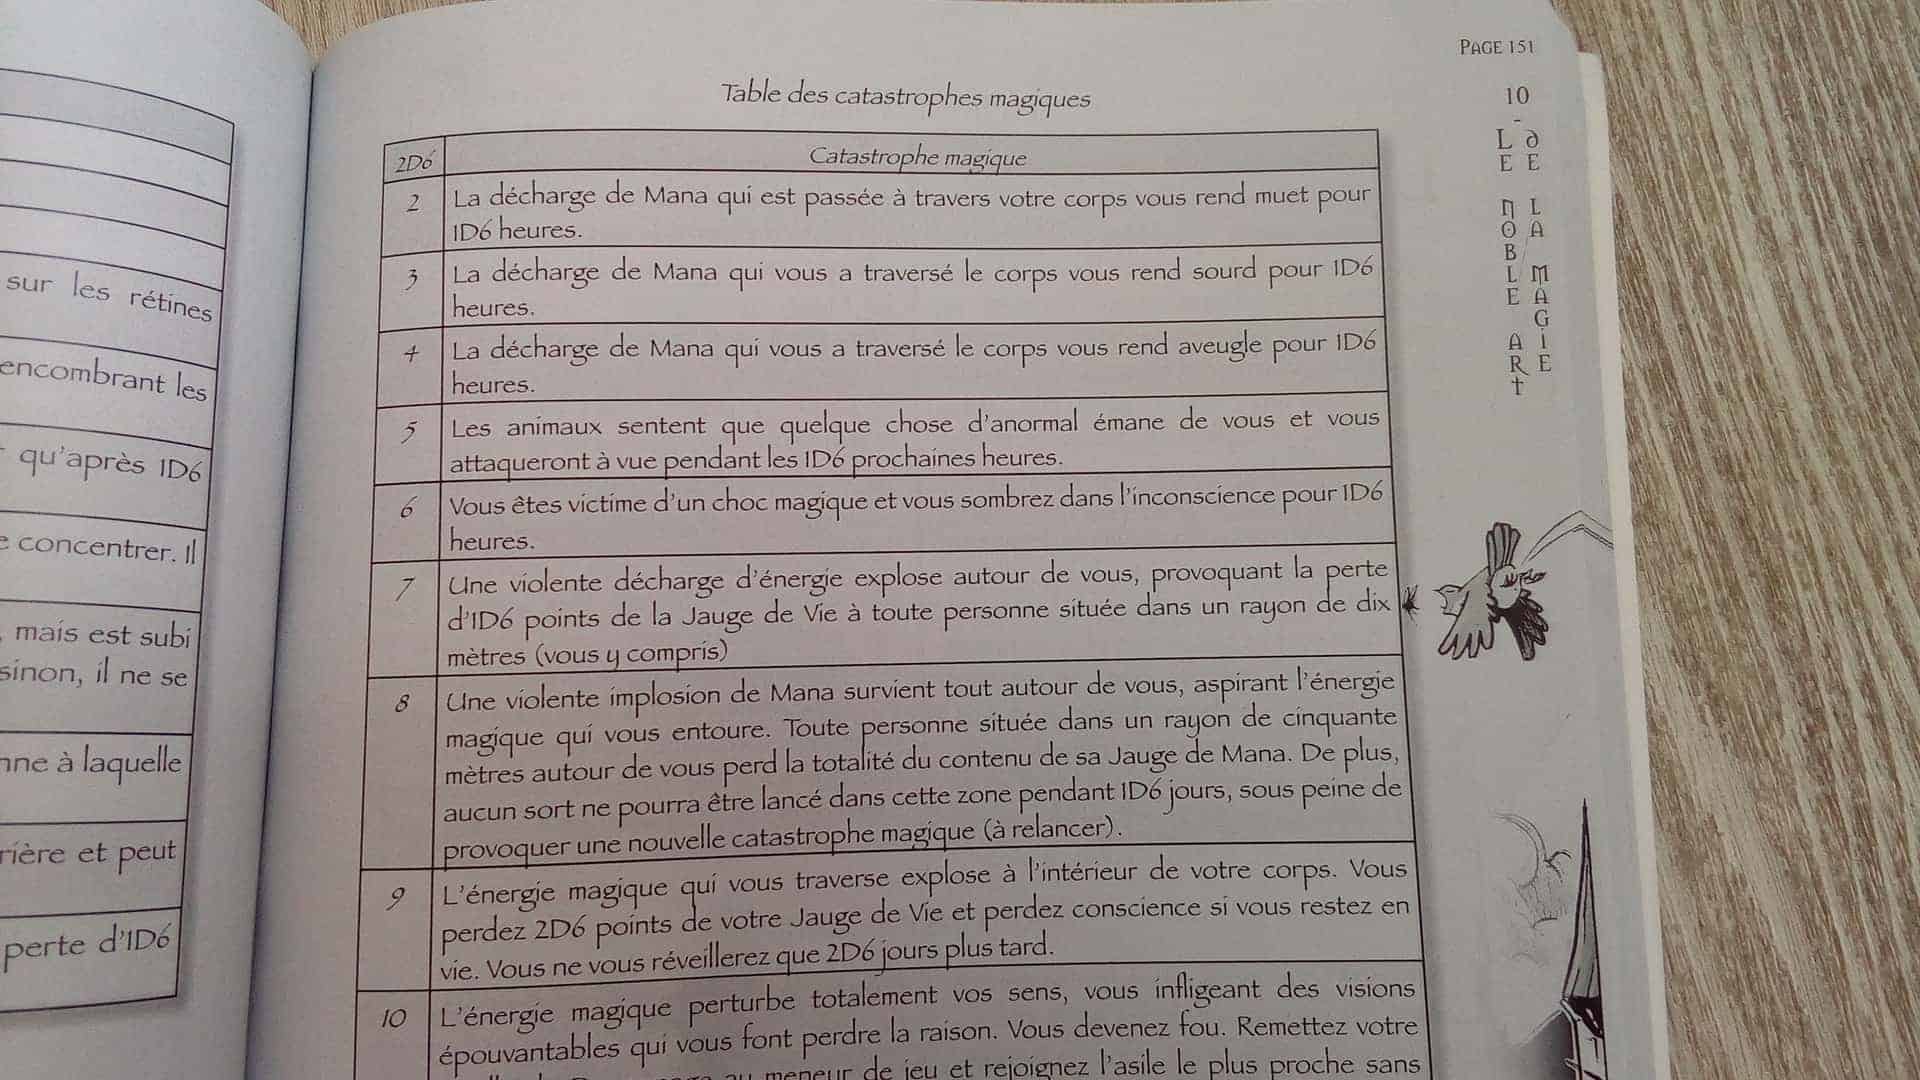 sur les rétines
encombrant les
qu'après 1D6
concentrer. Il
, mais est subi
sinon, il ne se
à laquelle
et peut
perte d'1D6
PAGE 151
10
-
LE NOBLE ART
DE LA MAGIE
Table des catastrophes magiques
2D6 Catastrophe magique
2 La décharge de Mana qui est passée à travers votre corps vous rend muet pour
1D6 heures.
3 La décharge de Mana qui vous a traversé le corps vous rend sourd pour 1D6
heures.
4 La décharge de Mana qui vous a traversé le corps vous rend aveugle pour 1D6
heures.
5 Les animaux sentent que quelque chose d'anormal émane de vous et vous
attaqueront à vue pendant les 1D6 prochaines heures.
6 Vous êtes victime d'un choc magique et vous sombrez dans l'inconscience pour 1D6
heures.
7 Une violente décharge d'énergie explose autour de vous, provoquant la perte
d'1D6 points de la Jauge de Vie à toute personne située dans un rayon de dix
mètres (vous y compris)
8 Une violente implosion de Mana survient tout autour de vous, aspirant l'énergie
magique qui vous entoure. Toute personne située dans un rayon de cinquante
mètres autour de vous perd la totalité du contenu de sa Jauge de Mana. De plus,
aucun sort ne pourra être lancé dans cette zone pendant 1D6 jours, sous peine de
provoquer une nouvelle catastrophe magique (à relancer).
9 L'énergie magique qui vous traverse explose à l'intérieur de votre corps. Vous
perdez 2D6 points de votre Jauge de Vie et perdez conscience si vous restez en
vie. Vous ne vous réveillerez que 2D6 jours plus tard.
10 L'énergie magique perturbe totalement vos sens, vous infligeant des visions
épouvantables qui vous font perdre la raison. Vous devenez fou. Remettez votre
au meneur de jeu et rejoignez l'asile le plus proche sans